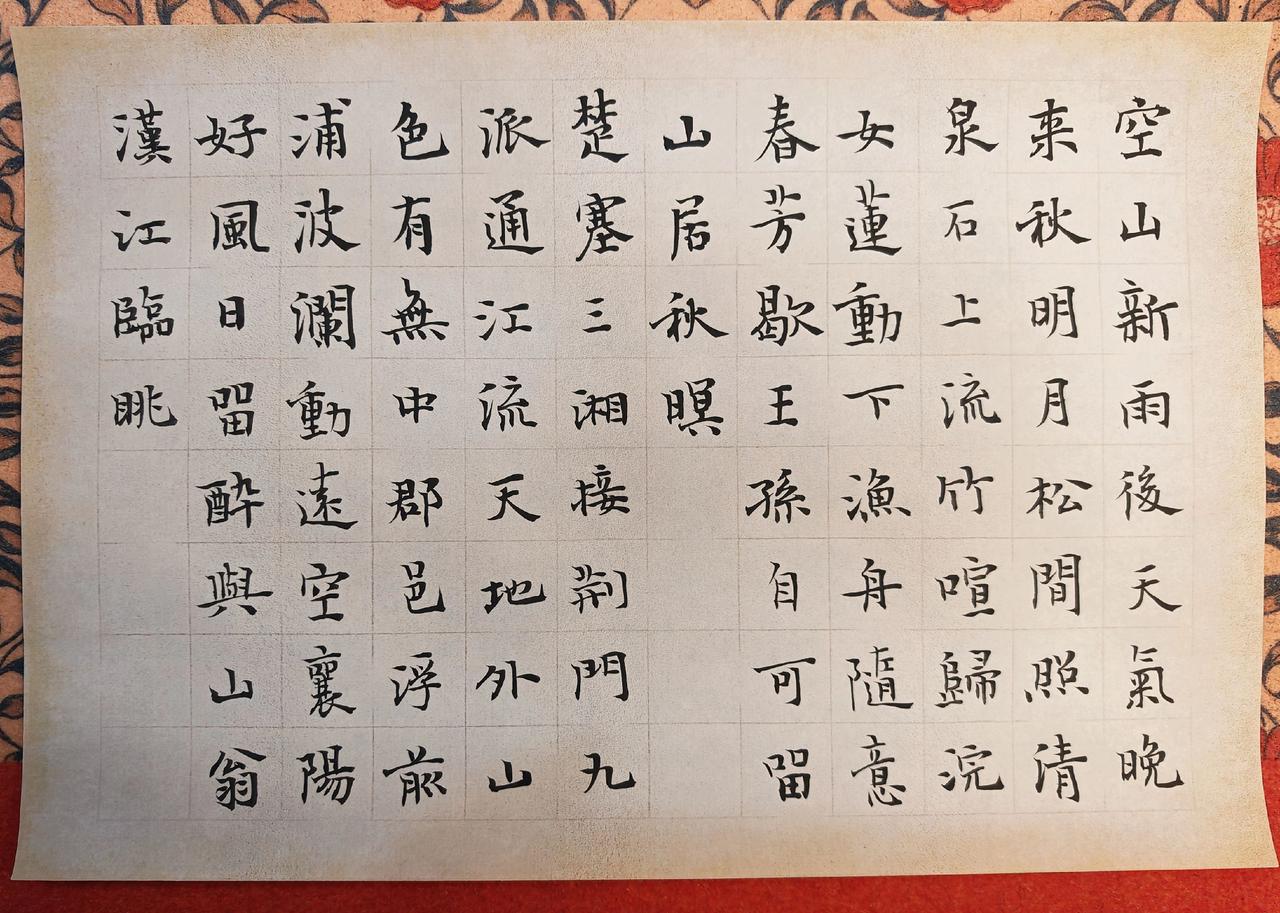 空山新雨後天氣晚
来秋明月松間照清
泉石上流竹喧歸浣
女蓮動下漁舟隨意
春芳歇王孫自可留
山居秋暝
楚塞三湘接荆門九
派通江流天地外山
色有無中郡邑浮前
浦波瀾動遠空襄陽
好風日留醉與山翁
漢江臨眺